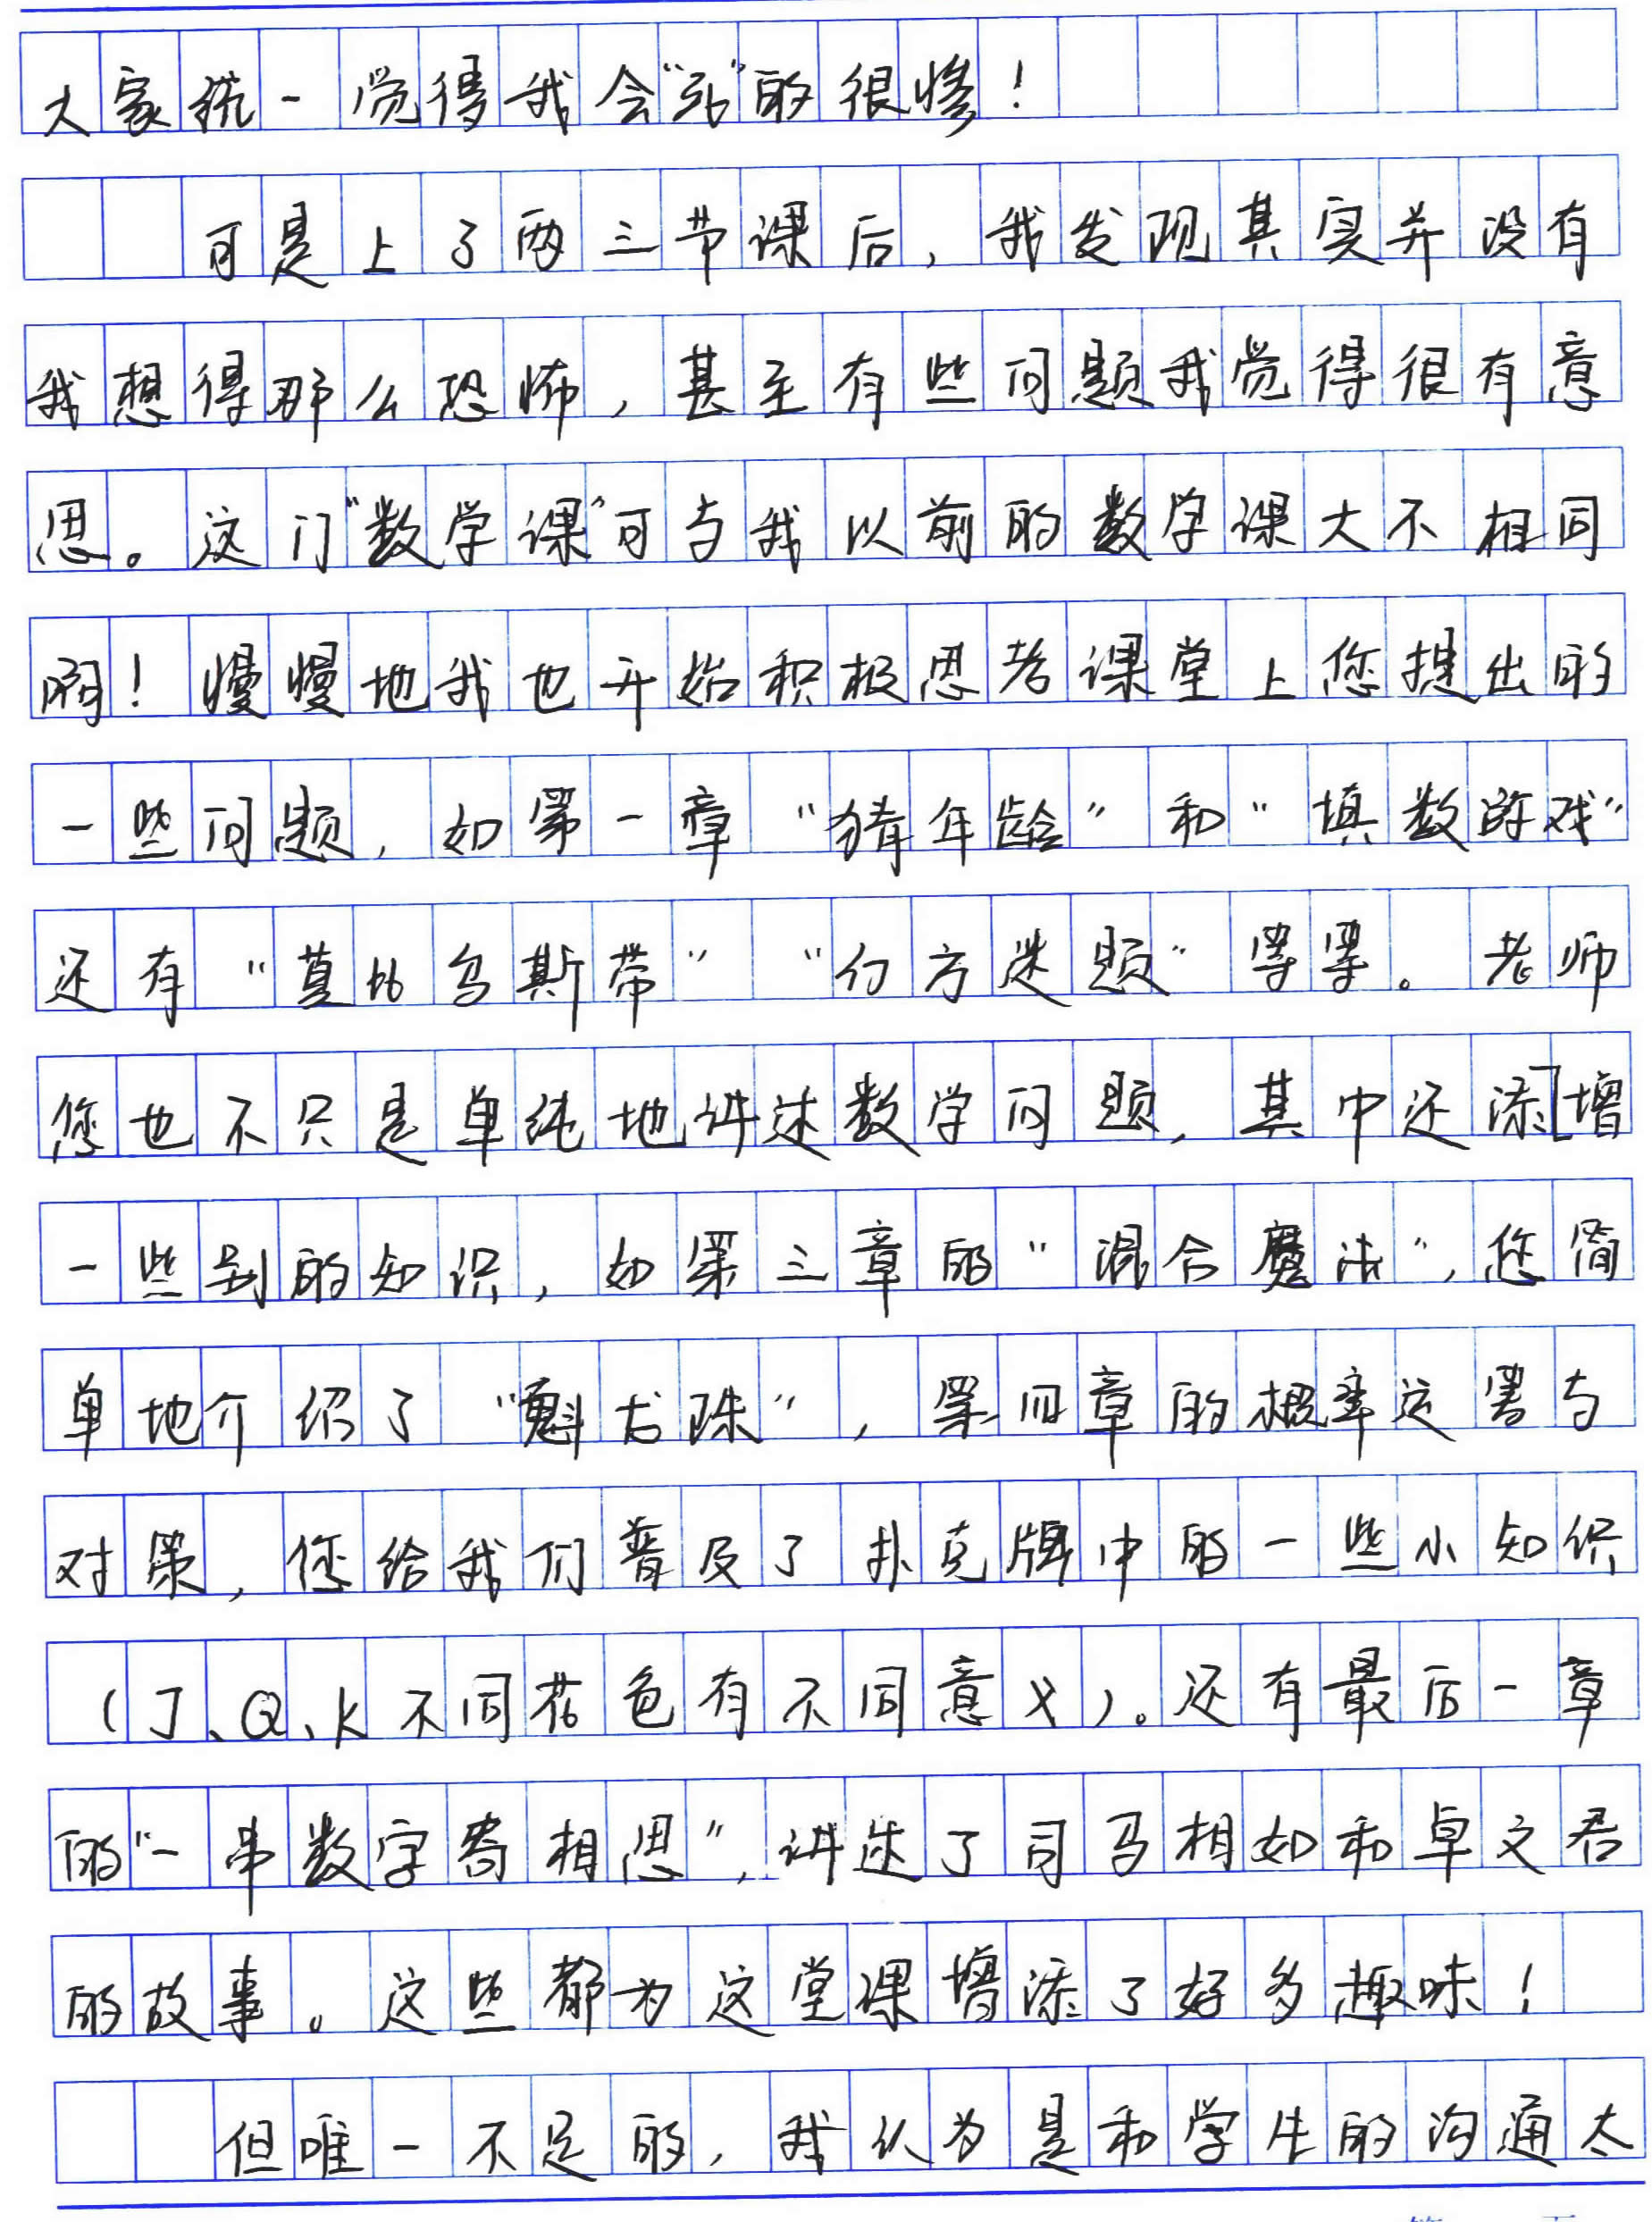 大家统一觉得我会“死”的很惨！
可是上了两三节课后，我发现其实并没有
我想得那么恐怖，甚至有些问题我觉得很有意
思。这门“数学课”可与我以前的数学课大不相同
啊！慢慢地我也开始积极思考课堂上您提出的
一些问题，如第一章“猜年龄”和“填数游戏”
还有“莫比乌斯带”“幻方迷题”等等。老师
您也不只是单纯地讲述数学问题，其中还添增
一些别的知识，如第三章的“混合魔法”，您简
单地介绍了“魁古珠”，第四章的概率运害与
对策，您给我们普及了扑克牌中的一些小知识
（J、Q、K不同花色有不同意义）。还有最后一章
的“一串数字寄相思”，讲述了司马相如和卓文君
的故事。这些都为这堂课增添了好多趣味！
但唯一不足的，我认为是和学生的沟通太